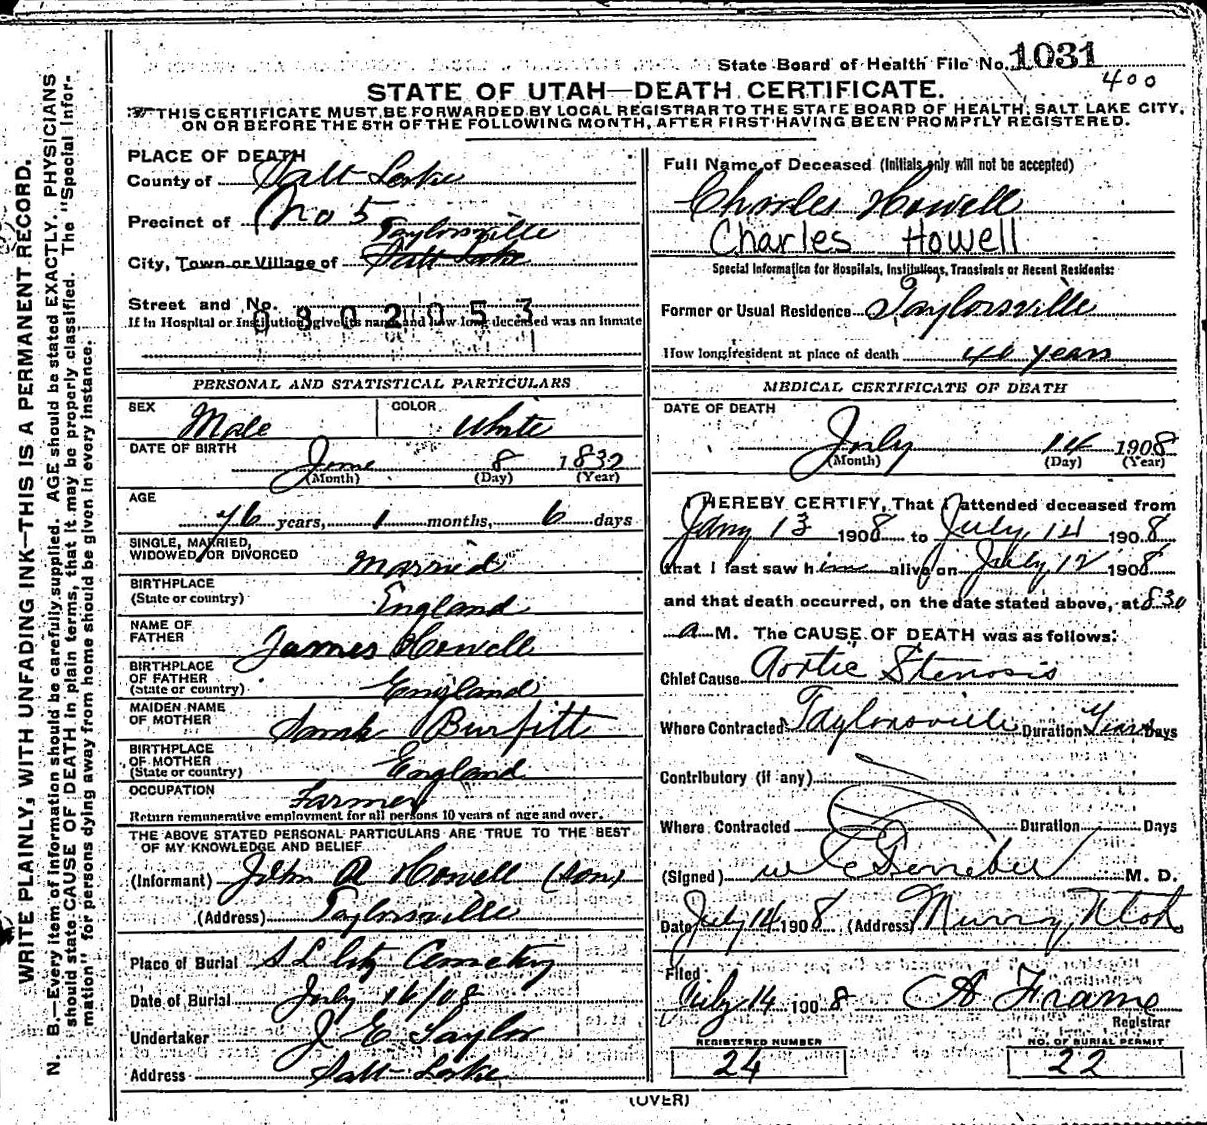 State Board of Health File No. 1031
400
STATE OF UTAH—DEATH CERTIFICATE.
THIS CERTIFICATE MUST BE FORWARDED BY LOCAL REGISTRAR TO THE STATE BOARD OF HEALTH, SALT LAKE CITY,
ON OR BEFORE THE 5TH OF THE FOLLOWING MONTH, AFTER FIRST HAVING BEEN PROMPTLY REGISTERED.
WRITE PLAINLY, WITH UNFADING INK—THIS IS A PERMANENT RECORD.
N. B.—Every item of information should be carefully supplied. AGE should be stated EXACTLY. PHYSICIANS
should state CAUSE OF DEATH in plain terms, that it may be properly classified. The "Special Infor-
mation" for persons dying away from home should be given in every instance.
PLACE OF DEATH
County of Salt Lake
Precinct of No 5
Taylorsville
City, Town or Village of Salt Lake
Street and No.
0302053
If in Hospital or Institution give its name and how long deceased was an inmate
PERSONAL AND STATISTICAL PARTICULARS
SEX Male COLOR White
DATE OF BIRTH
June 8 1832
(Month) (Day) (Year)
AGE
76 years, 1 months, 6 days
SINGLE, MARRIED,
WIDOWED OR DIVORCED Married
BIRTHPLACE
(State or country) England
NAME OF
FATHER James Howell
BIRTHPLACE
OF FATHER
(State or country) England
MAIDEN NAME
OF MOTHER Sarah Burfitt
BIRTHPLACE
OF MOTHER
(State or country) England
OCCUPATION Farmer
Return remunerative employment for all persons 10 years of age and over.
THE ABOVE STATED PERSONAL PARTICULARS ARE TRUE TO THE BEST
OF MY KNOWLEDGE AND BELIEF
(Informant) John A Howell (son)
(Address) Taylorsville
Place of Burial S L City Cemetery
Date of Burial July 16/08
Undertaker J E Taylor
Address Salt Lake
Full Name of Deceased (Initials only will not be accepted)
Charles Howell
Charles Howell
Special Information for Hospitals, Institutions, Transients or Recent Residents:
Former or Usual Residence Taylorsville
How long resident at place of death 40 years
MEDICAL CERTIFICATE OF DEATH
DATE OF DEATH
July 14 1908
(Month) (Day) (Year)
I HEREBY CERTIFY, That I attended deceased from
Jany 13 1908 to July 14 1908
that I last saw him alive on July 12 1908
and that death occurred, on the date stated above, at 830
a M. The CAUSE OF DEATH was as follows:
Chief Cause Aortic Stenosis
Where Contracted Taylorsville Duration Years Days
Contributory (if any)
Where Contracted Duration Days
(Signed) M. D.
Date July 14 1908 (Address) Murray, Utah
Filed
July 14 1908 A Frame
Registrar
REGISTERED NUMBER NO. OF BURIAL PERMIT
24 22
(OVER)